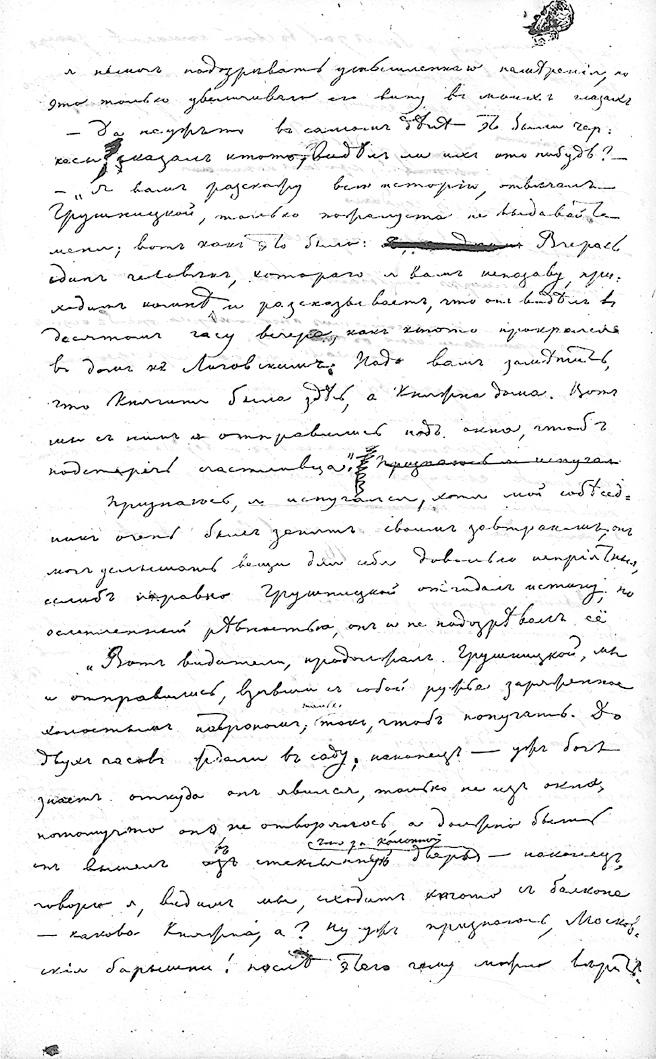 я не могъ подозрѣвать умышленнаго намѣренія, но
это только увеличивало его вину въ моихъ глазахъ
— Да неужъто въ самомъ дѣлѣ это были чер:
кесы, сказалъ ктото, видѣлъ ли ихъ кто нибудь? —
— „Я вамъ разскажу всю исторію, отвѣчалъ
Грушницкой, только пожалуста не выдавайте
меня; вотъ какъ это было: Вчерась
одинъ человѣкъ, котораго я вамъ неназову, при:
ходитъ комнѣ и разсказываетъ, что онъ видѣлъ въ
десятомъ часу вечера, какъ ктото прокрался
въ домъ къ Лиговскимъ. Надо вамъ замѣтить,
что Княгиня была здѣсь, а Княжна дома. Вотъ
мы съ нимъ и отправились подъ окна, чтобъ
подстеречь счастливца“. Признаюсь я испугал
Признаюсь, я испугался, хотя мой собѣсед=
никъ очень былъ занятъ своимъ завтракомъ, онъ
могъ услышать вещи для себя довольно непріятныя,
еслибъ неравно Грушницкой отгадалъ истину; но
ослепленный рѣвностью, онъ и не подозрѣвалъ её
„Вотъ видители, продолжалъ Грушницкой, мы
и отправились, взявши съ собой ружье заряженное
холостымъ патрономъ, только такъ, чтобъ попугать. До
двухъ часовъ ждали въ саду, наконецъ — ужъ богъ
знаетъ откуда онъ явился, только не изъ окна,
потомучто оно не отворялось, а должно быть
онъ вышелъ въ стеклянную дверь что за колонной — наконецъ,
говорю я, видимъ мы, сходитъ ктото съ балкона
— какова Княжна, а? ну ужъ признаюсь, Москов:
скія барышни! послѣ этого чему можно вѣрить.